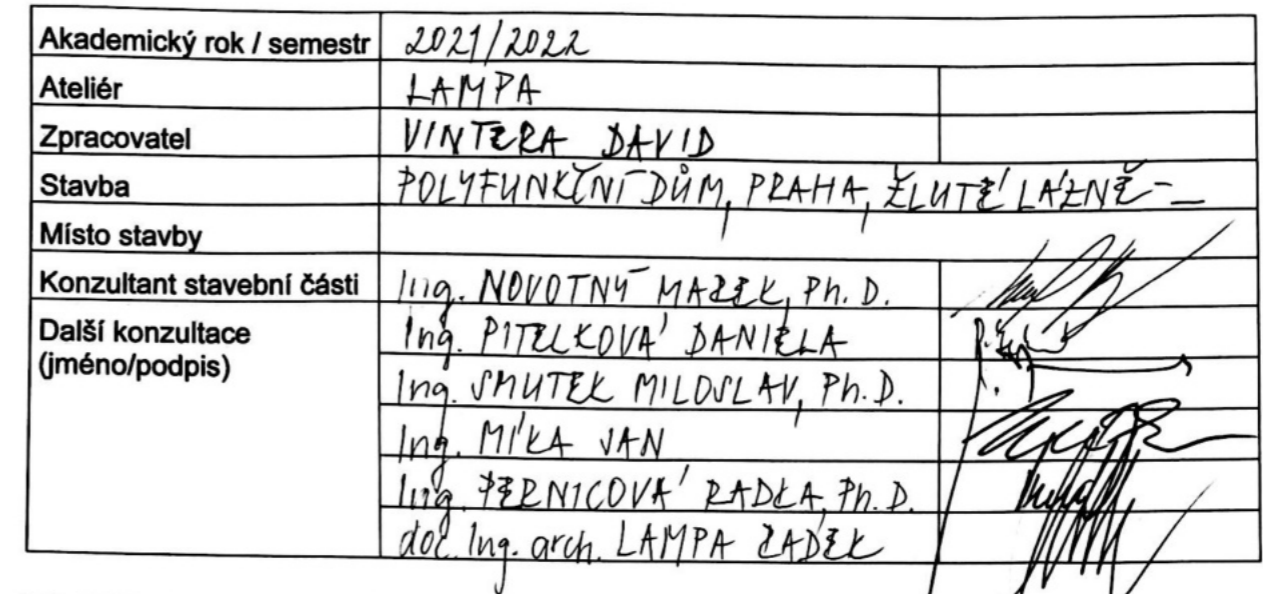 Akademický rok / semestr 2021/2022
Ateliér LAMPA
Zpracovatel VINTERA DAVID
Stavba POLYFUNKČNÍ DŮM, PRAHA, ŽLUTÉ LÁZNĚ –
Místo stavby
Konzultant stavební části Ing. NOVOTNÝ MAREK, Ph. D.
Další konzultace Ing. PITELKOVÁ DANIELA
(jméno/podpis) Ing. SMUTEK MILOSLAV, Ph. D.
Ing. MÍKA JAN
Ing. PERNICOVÁ RADKA, Ph. D.
doc. Ing. arch. LAMPA RADEK